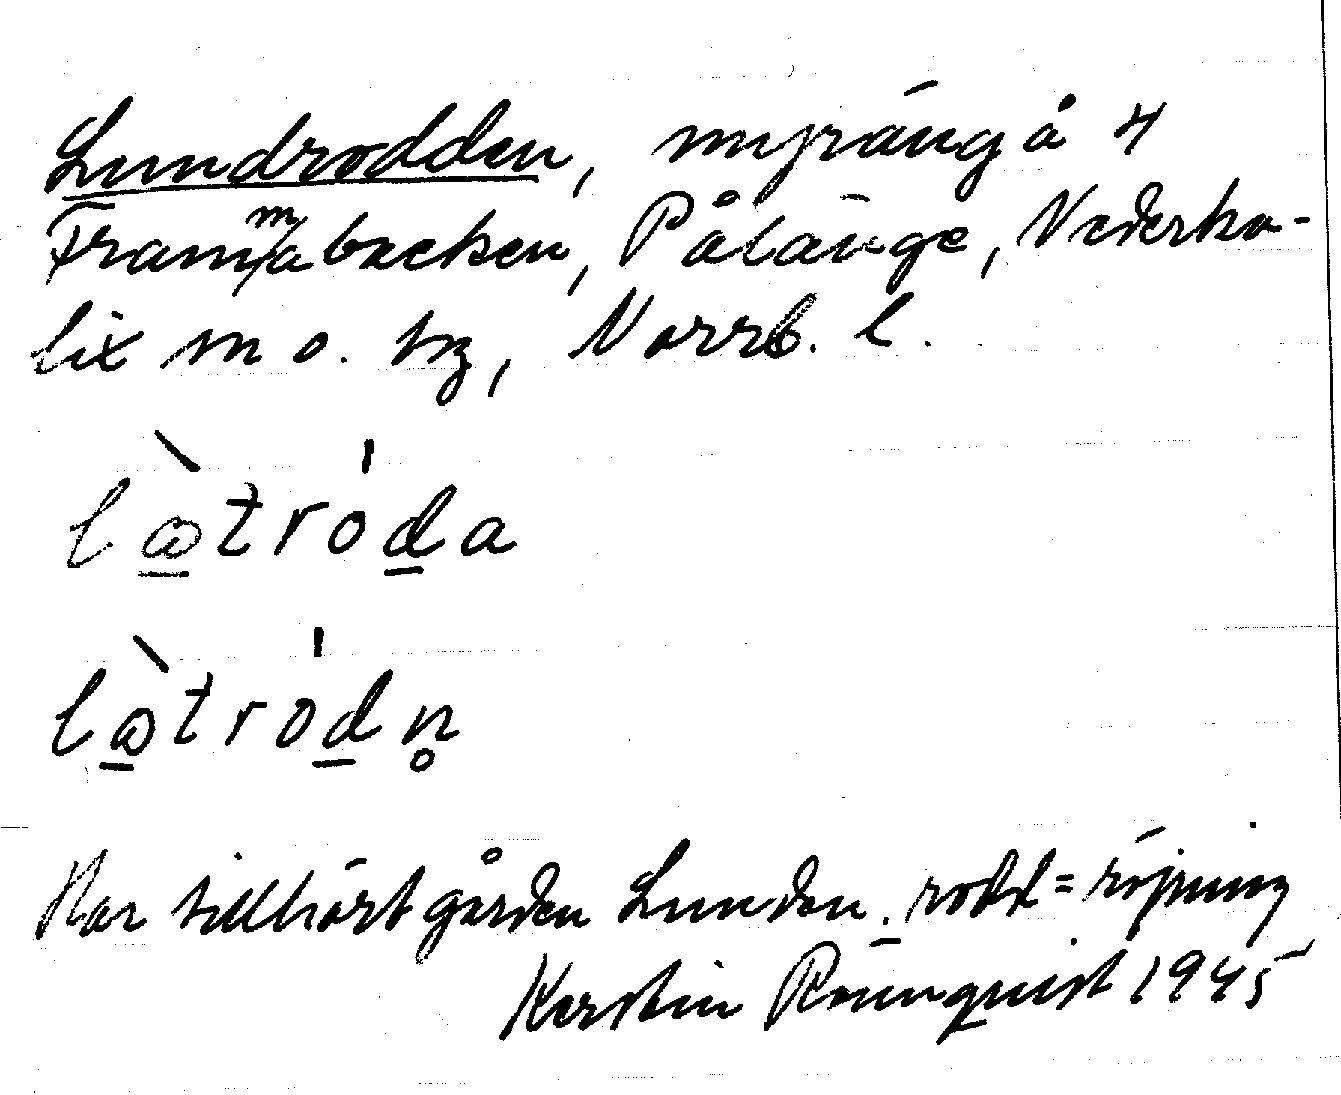 Lundrodden, myräng å 4
Frammabacken, Pålänge, Nederka-
lix sn o. tg, Norrb. l.
Har tillhört gården Lunden. rodd = röjning
Kerstin Rönnquist 1945